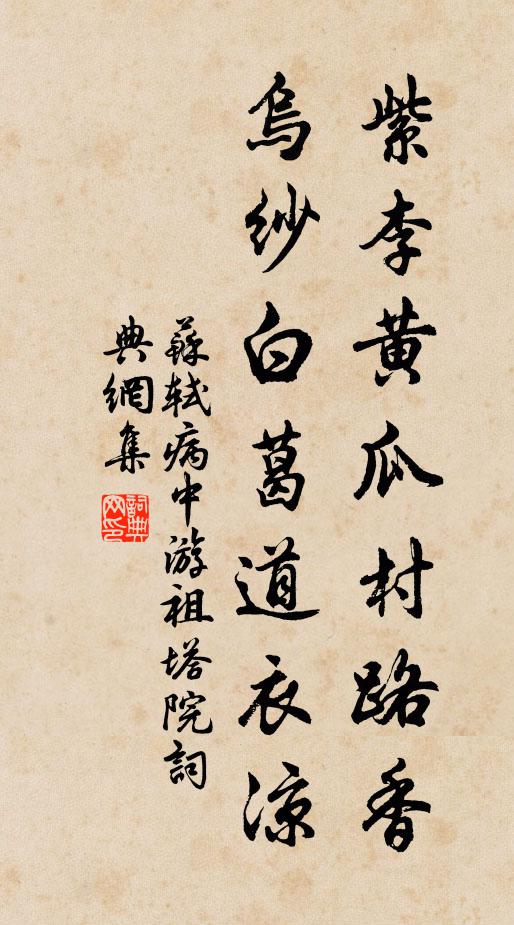 紫李黄瓜村路香
烏紗白葛道衣涼
蘇軾病中游祖塔院詞
典網集
詞典
网印